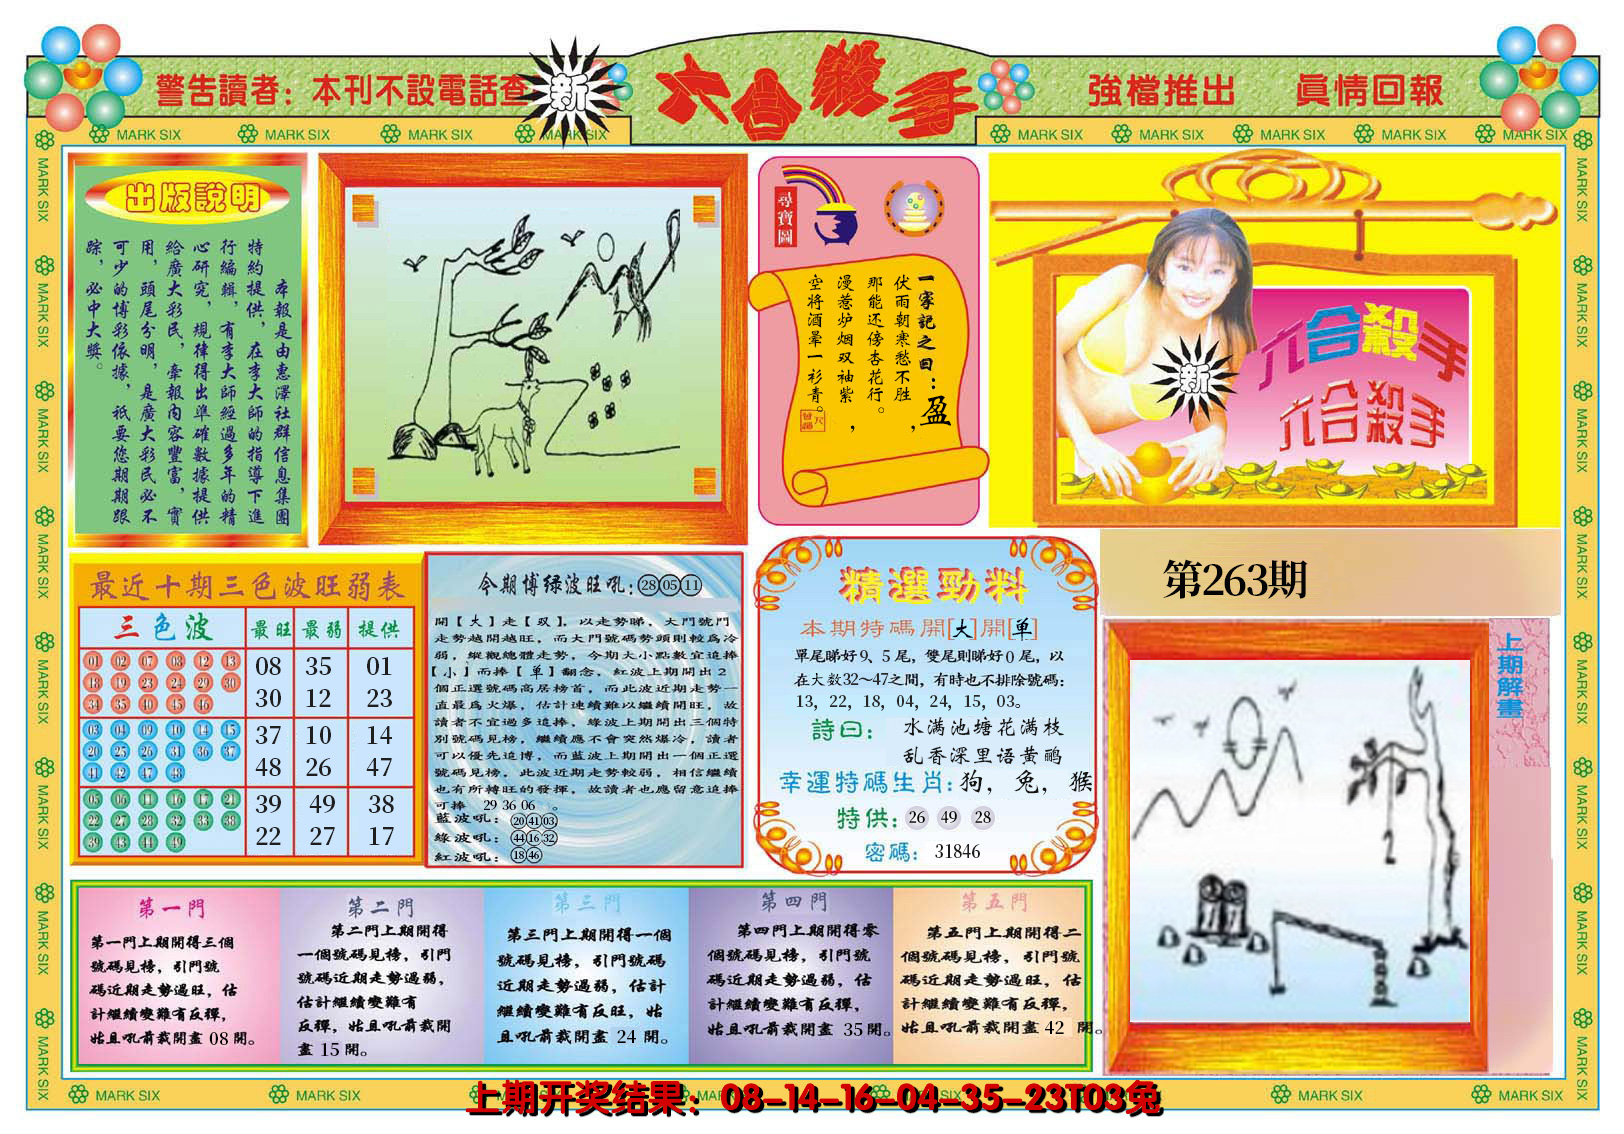 警告讀者：本刊不設電話查
新
六合殺手
強檔推出 眞情回報
MARK SIX
出版說明
本報是由惠澤社群信息集團
特約提供，在李大師的指導下進
行編輯，有李大師經過多年的精
心研究，規律得出準確數據提供
給廣大彩民，牽報內容豐富，實
用，頭尾分明，是廣大彩民必不
可少的博彩依據，祇要您期期跟
踪，必中大獎。
尋寶圖
一家記之曰：盈
伏雨朝寒愁不胜，
那能还傍杏花行。
漫惹炉烟双袖紫，
空将酒晕一衫青。
六合殺手
六合殺手
新
第263期
上期解畫
最近十期三色波旺弱表
三色波 最旺 最弱 提供
01 02 07 08 12 13
18 19 23 24 29 30
34 35 40 45 46
08 35 01
30 12 23
03 04 09 10 14 15
20 25 26 31 36 37
41 42 47 48
37 10 14
48 26 47
05 06 11 16 17 21
22 27 28 32 33 38
39 43 44 49
39 49 38
22 27 17
今期博绿波旺吼：28 05 11
開【大】走【双】，以走勢睇，大門號門
走勢越開越旺，而大門號碼勢頭則較爲冷
弱，縱觀總體走勢，今期大小點數宜追捧
【小】而捧【单】翻念，紅波上期開出2
個正選號碼高居榜首，而此波近期走勢一
直最爲火爆，估計連續難以繼續開旺，故
讀者不宜過多追捧，綠波上期開出三個特
別號碼見榜，繼續應不會突然爆冷，讀者
可以優先追博，而藍波上期開出一個正選
號碼見榜，此波近期走勢較弱，相信繼續
也有所轉旺的發揮，故讀者也應留意追捧
可捧 29 36 06 。
藍波吼：20 41 03
綠波吼：44 16 32
紅波吼：18 46
精選勁料
本期特碼開[大]開[单]
單尾睇好9、5尾，雙尾則睇好0尾，以
在大数32～47之間，有時也不排除號碼：
13，22，18，04，24，15，03。
詩曰： 水满池塘花满枝
乱香深里语黄鹂
幸運特碼生肖：狗，兔，猴
特供：26 49 28
密碼：31846
第一門
第一門上期開得三個
號碼見榜，引門號
碼近期走勢過旺，估
計繼續變難有反彈，
姑且吼前裁開盡 08 開。
第二門
第二門上期開得
一個號碼見榜，引門
號碼近期走勢過弱，
估計繼續變難有
反彈，姑且吼前裁開
盡 15 開。
第三門
第三門上期開得一個
號碼見榜，引門號碼
近期走勢過弱，估計
繼續變難有反旺，姑
且吼前裁開盡 24 開。
第四門
第四門上期開得零
個號碼見榜，引門號
碼近期走勢過弱，估
計繼續變難有反彈，
姑且吼前裁開盡 35 開。
第五門
第五門上期開得二
個號碼見榜，引門號
碼近期走勢過旺，估
計繼續變難有反彈，
姑且吼前裁開盡 42 開。
上期开奖结果：08-14-16-04-35-23T03兔